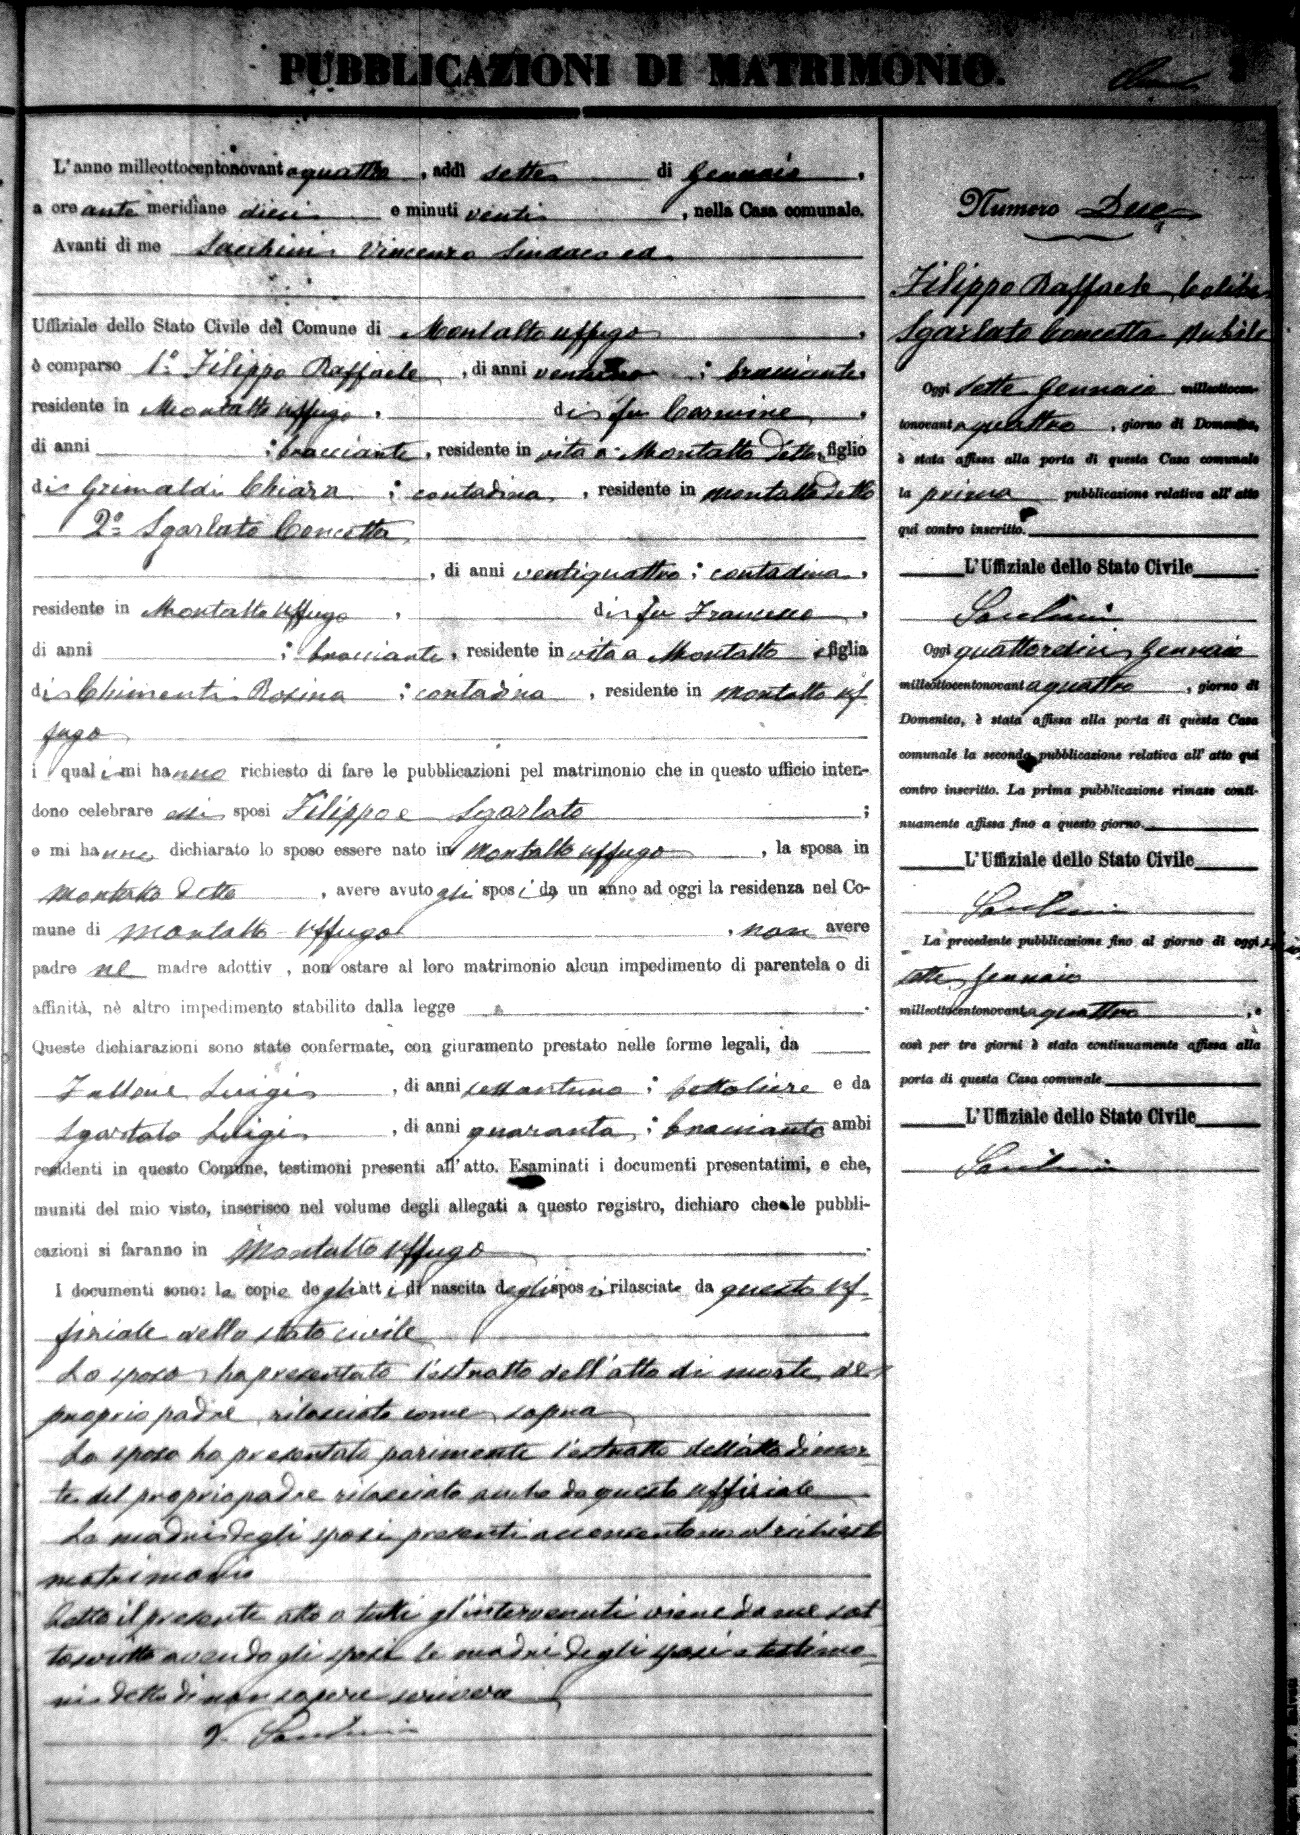 PUBBLICAZIONI DI MATRIMONIO.
L'anno milleottocentonovantaquattro, addì sette di Gennaio,
a ore ante meridiane dieci e minuti venti, nella Casa comunale.
Avanti di me Sacchini Vincenzo Sindaco ed
Uffiziale dello Stato Civile del Comune di Montalto Uffugo,
è comparso 1º Filippo Raffaele, di anni; bracciante,
residente in Montalto Uffugo, di fu Carmine,
di anni ; bracciante, residente in vita a Montalto detto, figlio
di Grimaldi Chiara; contadina, residente in Montalto detto
2º Sgarlato Concetta
, di anni ventiquattro; contadina,
residente in Montalto Uffugo, di fu Francesco,
di anni ; bracciante, residente in vita a Montalto figlia
di Chimenti Rosina; contadina, residente in Montalto Uf
fugo
i quali mi hanno richiesto di fare le pubblicazioni pel matrimonio che in questo ufficio inten-
dono celebrare essi sposi Filippo e Sgarlato;
e mi hanno dichiarato lo sposo essere nato in Montalto Uffugo, la sposa in
Montalto detto, avere avuto gli sposi da un anno ad oggi la residenza nel Co-
mune di Montalto Uffugo, non avere
padre nè madre adottiv , non ostare al loro matrimonio alcun impedimento di parentela o di
affinità, nè altro impedimento stabilito dalla legge.
Queste dichiarazioni sono state confermate, con giuramento prestato nelle forme legali, da
Luigi, di anni settantuno; bettoliere e da
Sgarlato Luigi, di anni quaranta; bracciante ambi
residenti in questo Comune, testimoni presenti all'atto. Esaminati i documenti presentatimi, e che,
muniti del mio visto, inserisco nel volume degli allegati a questo registro, dichiaro che le pubbli-
cazioni si faranno in Montalto Uffugo.
I documenti sono: le copie degli atti di nascita degli sposi, rilasciate da questo Uf
fiziale dello stato civile
Lo sposo ha presentato l'estratto dell'atto di morte del
proprio padre rilasciato come sopra
La sposa ha presentato parimente l'estratto dell'atto di mor
te del proprio padre rilasciato anche da questo uffiziale
Le madri degli sposi presenti acconsentono al richiesto
matrimonio
Letto il presente atto a tutti gl'intervenuti viene da me sot
toscritto avendo gli sposi le madri degli sposi e testimo
ni detto di non sapere scrivere
V. Sacchini
Numero Due
Filippo Raffaele Celibe
Sgarlato Concetta Nubile
Oggi sette Gennaio milleottocen-
tonovantaquattro, giorno di Domenica,
è stata affissa alla porta di questa Casa comunale
la prima pubblicazione relativa all'atto
qui contro inscritto.
L'Uffiziale dello Stato Civile
Sacchini
Oggi quattordici Gennaio
milleottocentonovantaquattro, giorno di
Domenica, è stata affissa alla porta di questa Casa
comunale la seconda pubblicazione relativa all'atto qui
contro inscritto. La prima pubblicazione rimase conti-
nuamente affissa fino a questo giorno.
L'Uffiziale dello Stato Civile
Sacchini
La precedente pubblicazione fino al giorno di oggi
sette Gennaio
milleottocentonovantaquattro,
così per tre giorni è stata continuamente affissa alla
porta di questa Casa comunale.
L'Uffiziale dello Stato Civile
Sacchini